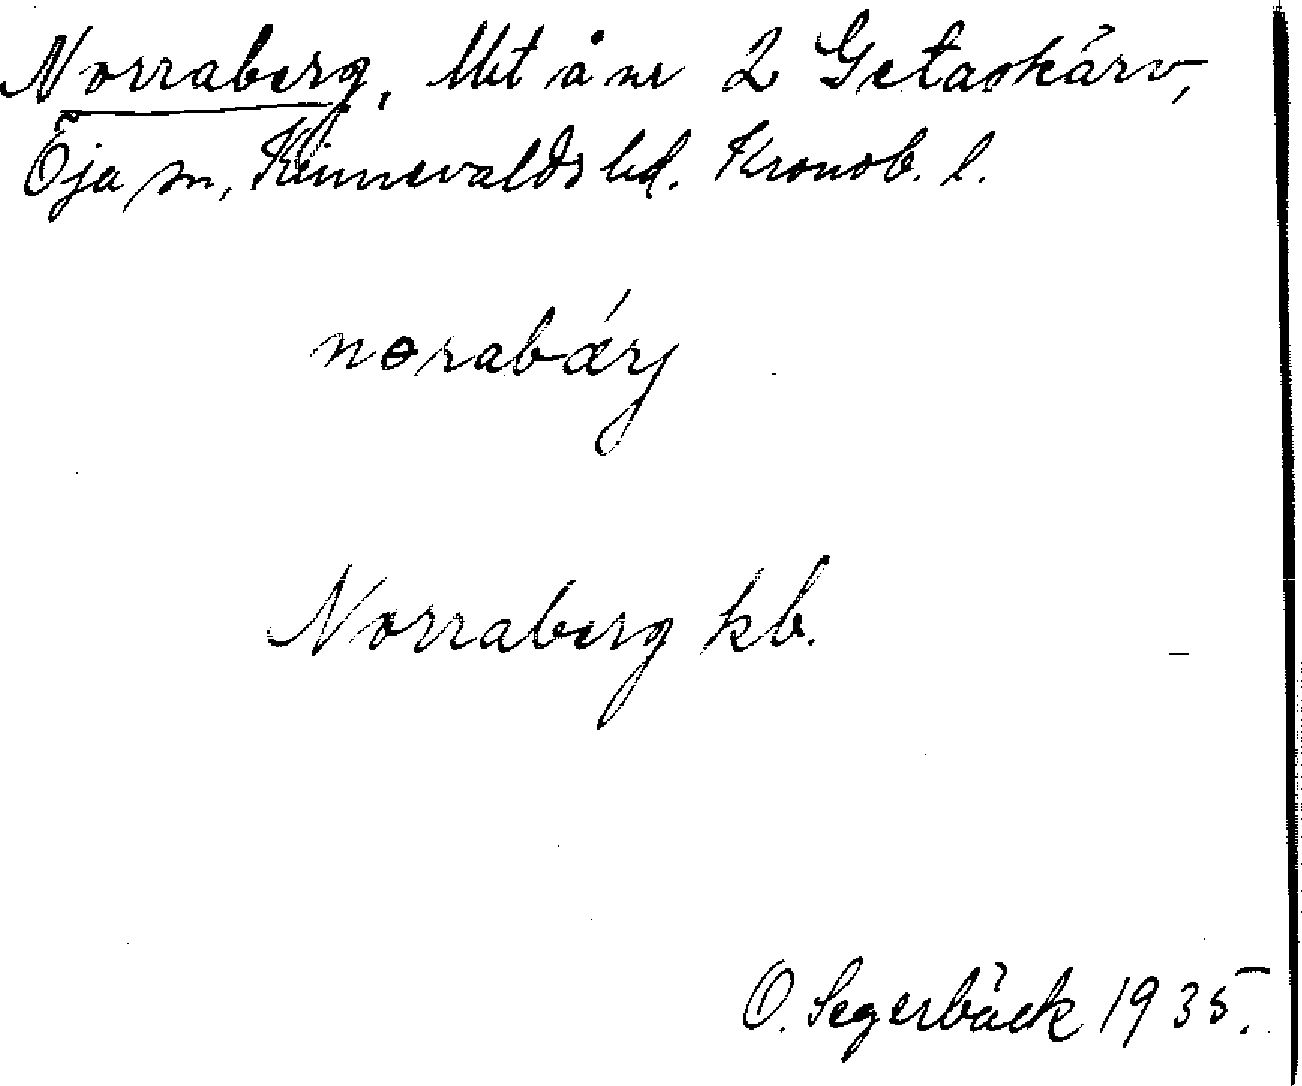 Norraberg, Utet å nr 2 Getaskärv,
Öja sn, Kinnevalds hd. Kronob. l.
norabárj
Norraberg kb.
O. Segerbäck 1935.